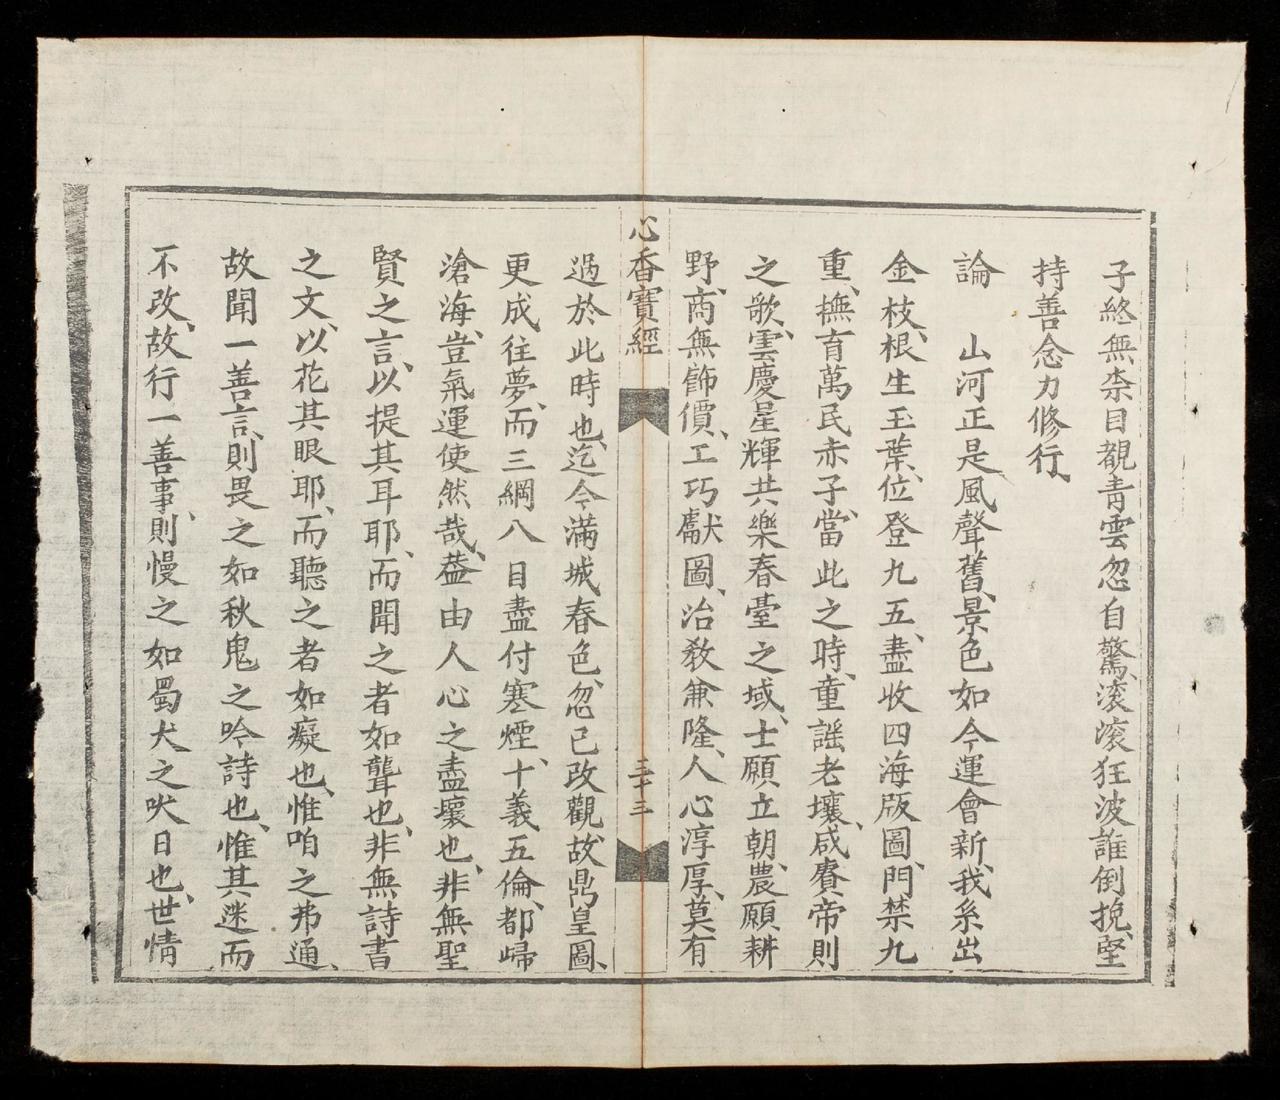 子終無柰目覩青雲忽自驚、滚滚狂波誰倒挽、堅
持善念力修行、
論　山河正是風聲舊、景色如今運會新、我系出
金枝、根生玉葉、位登九五、盡收四海版圖、門禁九
重、撫育萬民赤子、當此之時、童謡老壤、咸賡帝則
之歌、雲慶星輝共樂春臺之域、士願立朝、農願耕
野、商無飾價、工巧獻圖、治教兼隆、人心淳厚、莫有
心香寶經　三十三
過於此時也、迄今滿城春色、忽已改觀、故鼎皇圖、
更成往夢、而三綱八目盡付寒煙、十義五倫、都歸
滄海、豈氣運使然哉、葢由人心之盡壞也、非無聖
賢之言、以提其耳耶、而聞之者如聾也、非無詩書
之文、以花其眼耶、而聽之者如癡也、惟咱之弗通、
故聞一善言、則畏之如秋鬼之吟詩也、惟其迷而
不改、故行一善事、則慢之如蜀犬之吠日也、世情